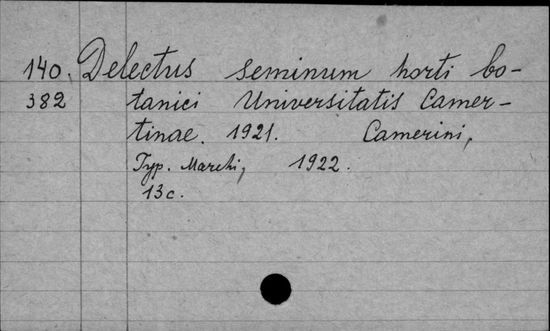 140. Delectus seminum horti bo-
382 tanici Universitatis Camer-
tinae. 1921. Camerini,
Typ. Marchi, 1922.
13c.